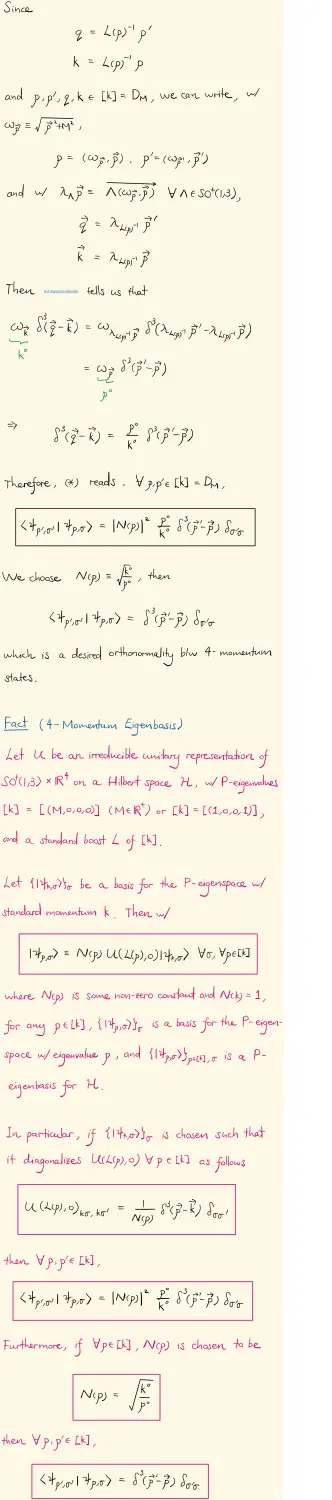 Since
q = L(p)⁻¹ p'
k = L(p)⁻¹ p
and p, p', q, k ∈ [k] = D_M, we can write, w/
ω_p⃗ ≡ √(p⃗²+M²),
p = (ω_p⃗, p⃗), p' = (ω_p⃗', p⃗')
and w/ λ_Λ p⃗ = Λ(ω_p⃗, p⃗) ∀ Λ ∈ SO⁺(1,3),
q⃗ = λ_L(p)⁻¹ p⃗'
k⃗ = λ_L(p)⁻¹ p⃗
Then tells us that
ω_k⃗ δ³(q⃗-k⃗) = ω_λ_L(p)⁻¹ p⃗ δ³(λ_L(p)⁻¹ p⃗' - λ_L(p)⁻¹ p⃗)
k⁰
= ω_p⃗ δ³(p⃗'-p⃗)
p⁰
⇒ δ³(q⃗-k⃗) = p⁰/k⁰ δ³(p⃗'-p⃗)
Therefore, (*) reads, ∀ p,p' ∈ [k] = D_M,
⟨ψ_p',σ' | ψ_p,σ⟩ = |N(p)|² p⁰/k⁰ δ³(p⃗'-p⃗) δ_σ'σ
We choose N(p) = √(k⁰/p⁰), then
⟨ψ_p',σ' | ψ_p,σ⟩ = δ³(p⃗'-p⃗) δ_σ'σ
which is a desired orthonormality b/w 4-momentum
states.
Fact (4-Momentum Eigenbasis)
Let U be an irreducible unitary representation of
SO⁺(1,3) × ℝ⁴ on a Hilbert space H, w/ P-eigenvalues
[k] = [(M,0,0,0)] (M∈ℝ⁺) or [k] = [(1,0,0,1)],
and a standard boost L of [k].
Let {|ψ_k,σ⟩}_σ be a basis for the P-eigenspace w/
standard momentum k. Then w/
|ψ_p,σ⟩ = N(p) U(L(p),0)|ψ_k,σ⟩ ∀σ, ∀p∈[k]
where N(p) is some non-zero constant and N(k) = 1,
for any p ∈ [k], {|ψ_p,σ⟩}_σ is a basis for the P-eigen-
space w/ eigenvalue p, and {|ψ_p,σ⟩}_p∈[k],σ is a P-
eigenbasis for H.
In particular, if {|ψ_k,σ⟩}_σ is chosen such that
it diagonalizes U(L(p),0) ∀ p ∈ [k] as follows
U(L(p),0)_kσ,kσ' = 1/N(p) δ³(p⃗-k⃗) δ_σσ'
then ∀ p,p' ∈ [k],
⟨ψ_p',σ' | ψ_p,σ⟩ = |N(p)|² p⁰/k⁰ δ³(p⃗'-p⃗) δ_σ'σ
Furthermore, if ∀p∈[k], N(p) is chosen to be
N(p) = √(k⁰/p⁰)
then ∀ p,p' ∈ [k],
⟨ψ_p',σ' | ψ_p,σ⟩ = δ³(p⃗'-p⃗) δ_σ'σ